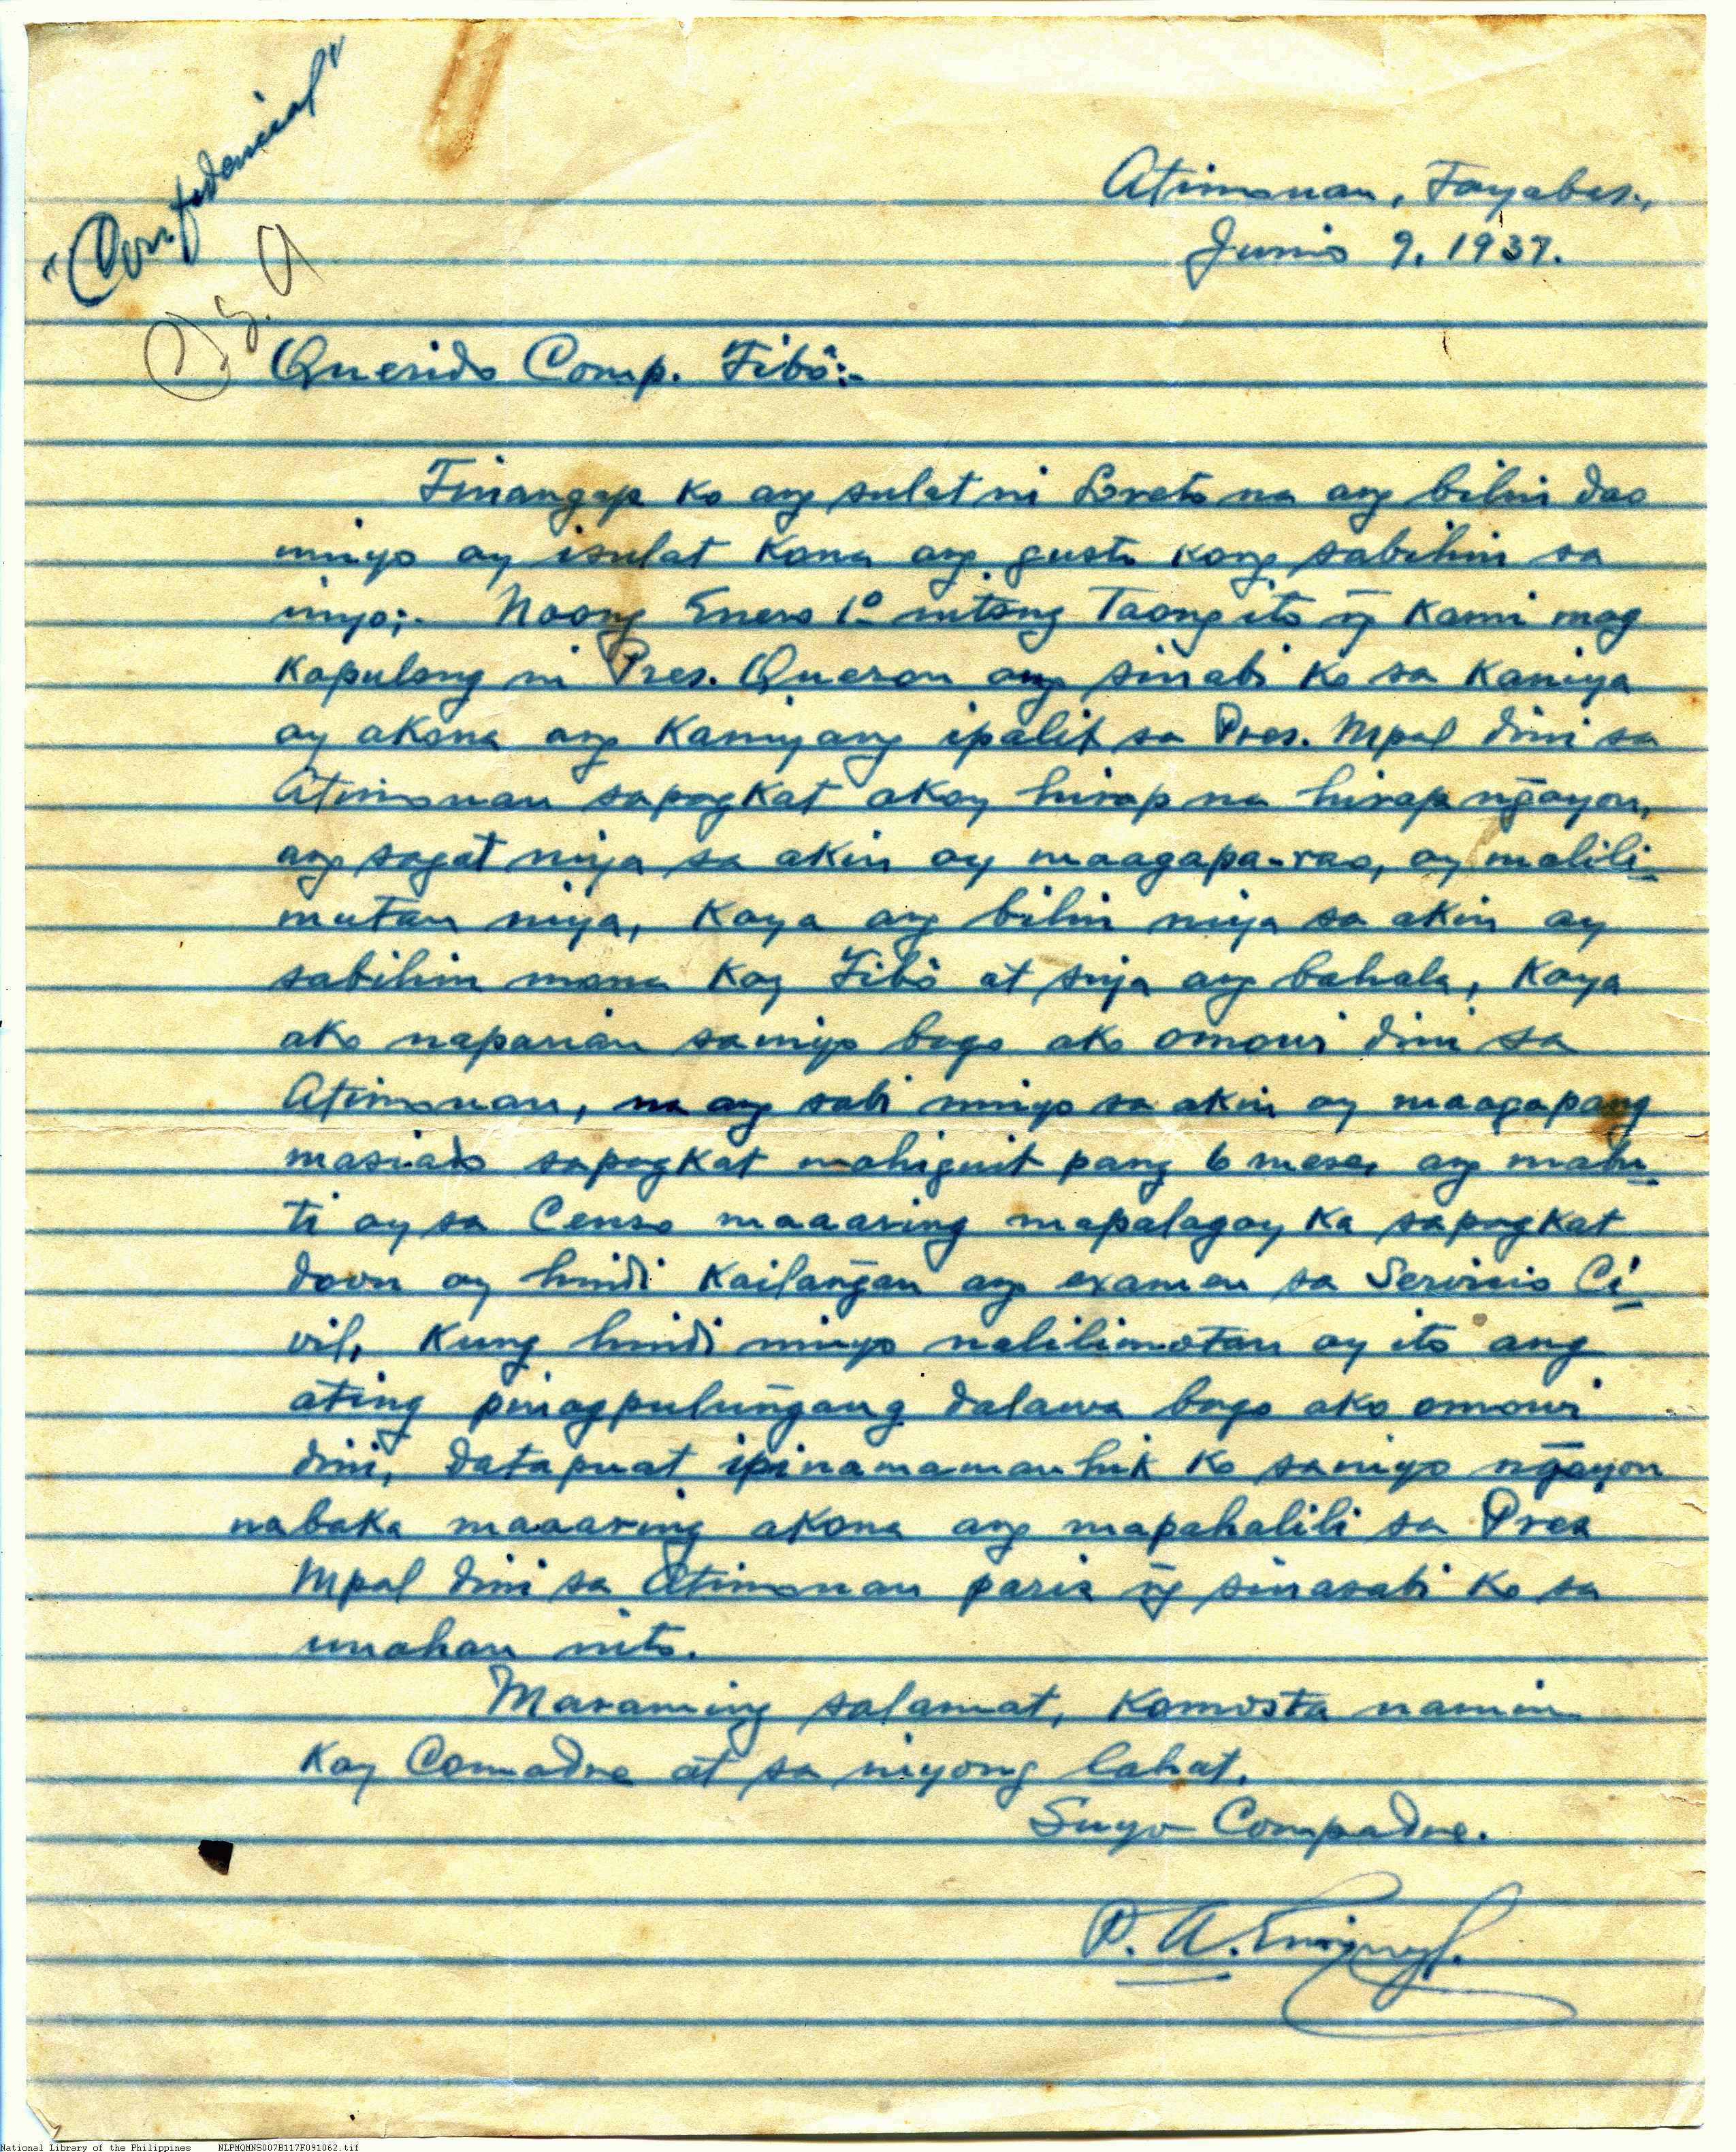 "Confidencial"
Atimonan, Tayabas.,
Junio 9, 1937.
Querido Comp. Tibô:-
Tinangap ko ang sulat ni Loreto na ang bilin dao
ninyo ay isulat kona ang gusto kong sabihin sa
inyo;- Noong Enero 1º nitong Taong ito ñg kami mag
kapulong ni Pres. Quezon ang sinabi ko sa kaniya
ay akona ang kaniyang ipalit sa Pres. Mpal dini sa
Atimonan sapagkat akoy hirap na hirap ñgayon,
ang sagot niya sa akin ay maagapa-rao, ay malili-
mutan niya, kaya ang bilin niya sa akin ay
sabihin mona kay Tibô at siya ang bahala, kaya
ako naparian sa niyo bago ako omowi dini sa
Atimonan, na ang sabi ninyo sa akin ay maagapang
masiado sapagkat mahiguit pang 6 meses ang mabu-
ti ay sa Censo maaaring mapalagay ka sapagkat
doon ay hindi kailañgan ang examen sa Servicio Ci-
vil, kung hindi ninyo nalilimotan ay ito ang
ating pinagpuluñgang dalawa bago ako omowi
dini, datapuat ipinamamanhik ko saniyo ñgayon
nabaka maaaring akona ang mapahalili sa Pres
Mpal dini sa Atimonan paris ñg sinasabi ko sa
unahan nito.
Maraming salamat, komosta namin
kay Comadre at sa niyong lahat.
Suyo Compadre.
P. A.
National Library of the Philippines NLPMQMNS007B117F091062.tif